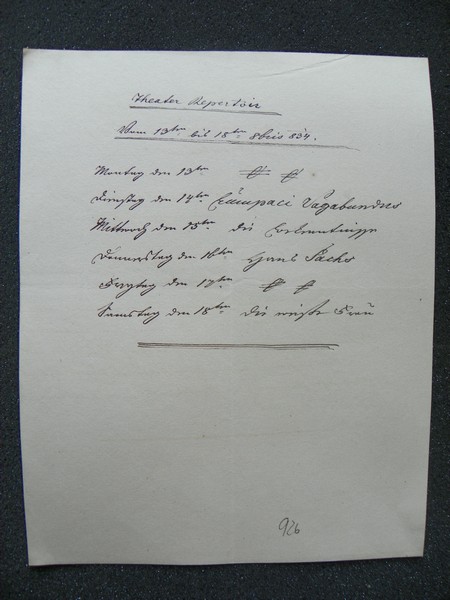 Theater Repertoir
Vom 13ten bis 18ten 8bris 834.
Montag den 13ten
Dienstag den 14ten Lumpaci Vagabundus
Mittwoch den 15ten die Bekenntnisse
Donnerstag den 16ten Hans Sachs
Freytag den 17ten
Samstag den 18ten die weiße Frau
926